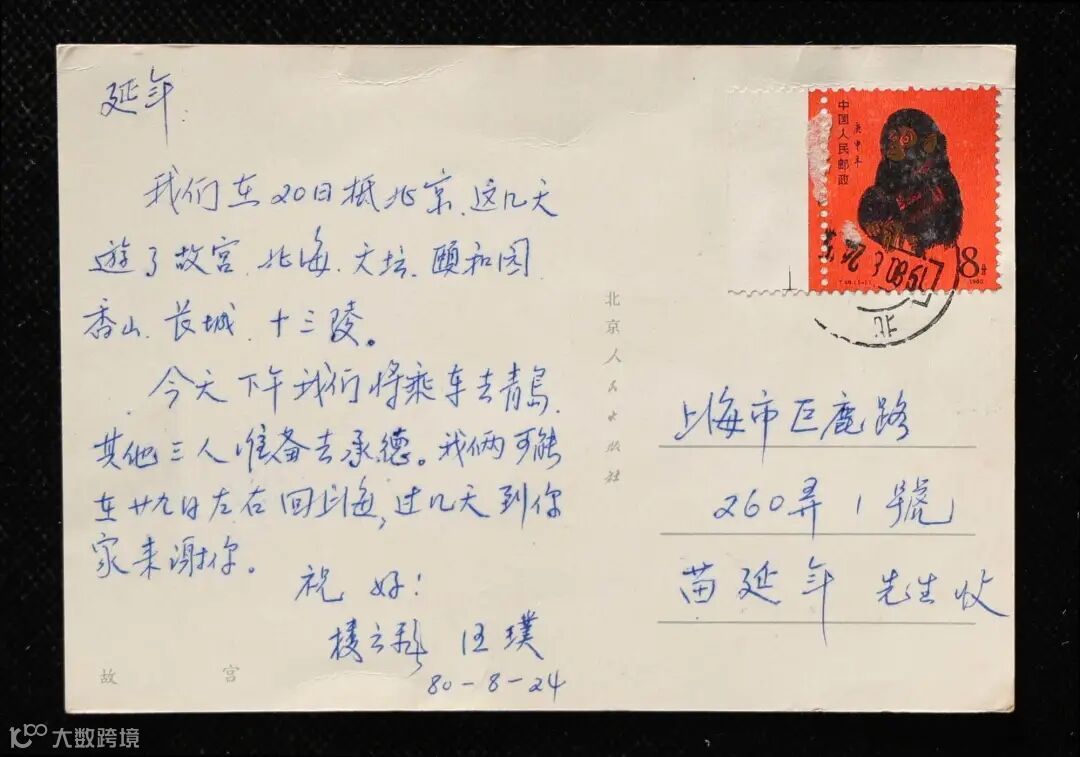 延年.
我们在20日抵北京.这几天
遊了故宫.北海.天坛.颐和园.
香山.长城.十三陵。
今天下午我们将乘车去青島.
其他三人准备去承德。我俩可能
在廿九日左右回上海,过几天到你
家来谢你。
祝好!
楼云 汪璞
80-8-24
故宫
北京人民出版社
中国人民邮政
庚申年
8分
T.46.(1-1)
1980
1980.8.24
北
上海市巨鹿路
260弄1號
苗延年先生收
大数跨境